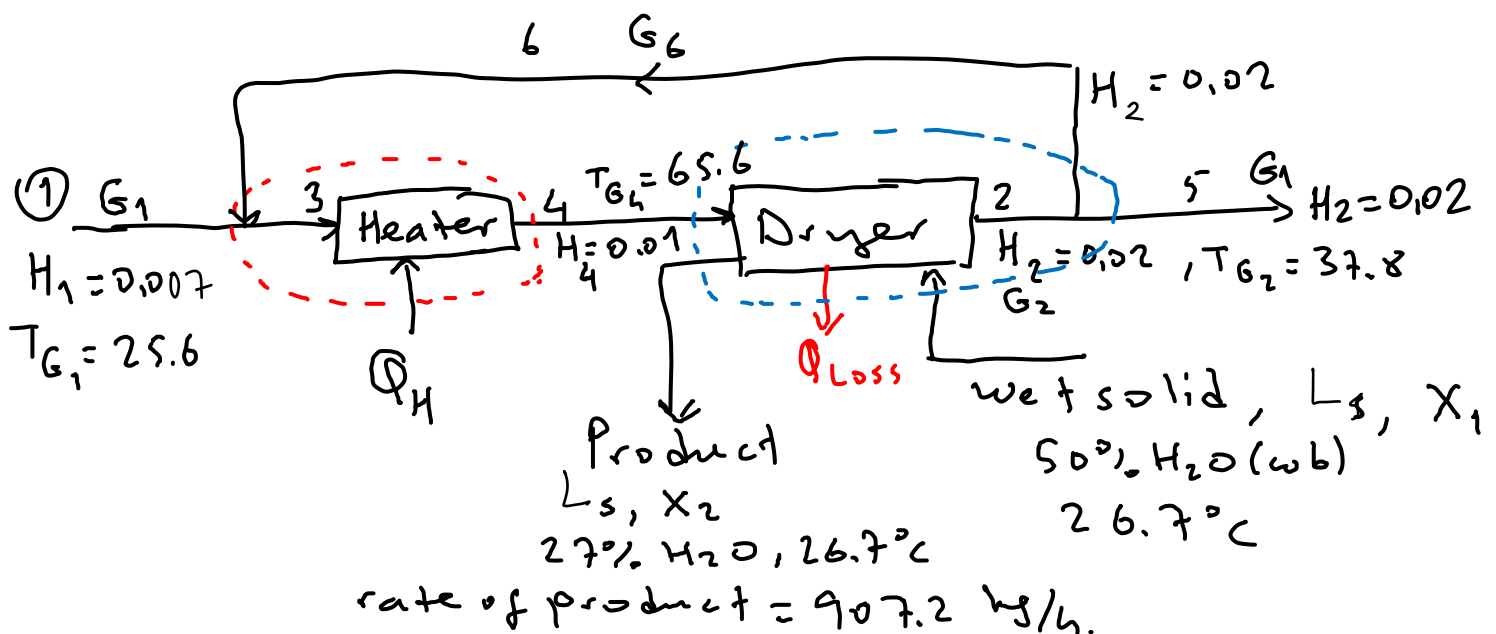 6 G₆
H₂ = 0,02
① G₁
3
Heater
4
T_G₄ = 65.6
H₄ = 0.01
Dryer
2
5 G₁
H₂ = 0,02
H₂ = 0,02 , T_G₂ = 37.8
G₂
H₁ = 0,007
T_G₁ = 25.6
Q_H
Q_Loss
wet solid, Ls, X₁
50% H₂O (wb)
26.7°C
Product
Ls, X₂
27% H₂O, 26.7°C
rate of product = 907.2 kg/h.